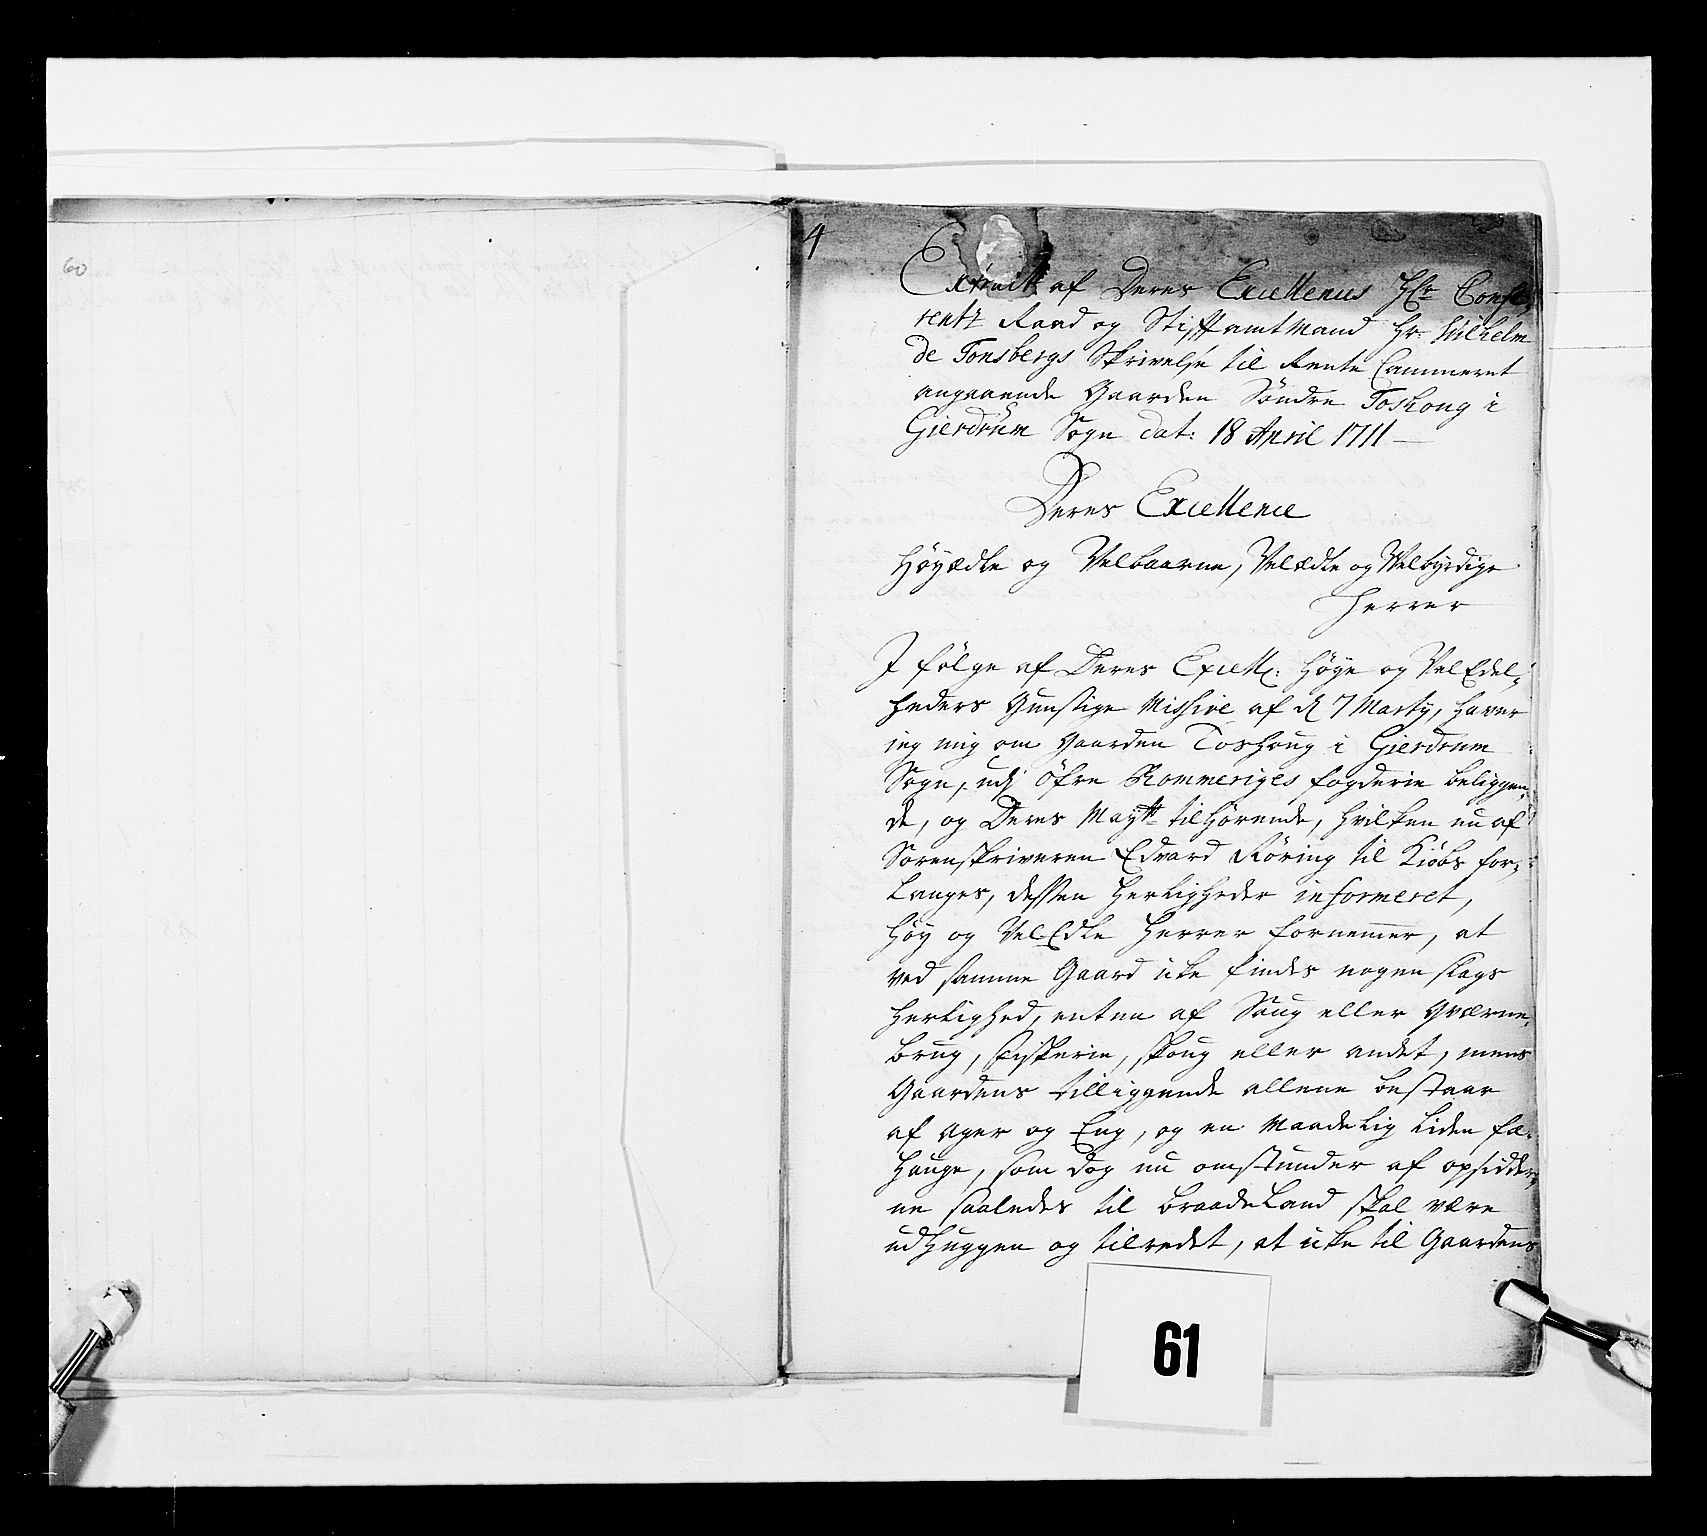 60
4
Extract af Deres Excellences Hr Confe,
rentz Raad og Stiftamtmand Hr. Wilhelm
de Tonsbergs Skrivelse til Rente Cammeret
angaaende Gaarden Søndre Toshoug i
Gierdrum Sogn dat: 18 April 1711 —
Deres Excellence
Høyædle og Velbaarne, Velædle og Velbyrdige
Herrer
I følge af Deres Excell: Høye og VelEdel,
heders Gunstige Missive af d 7 Marty, haver
jeg mig om Gaarden Toshoug i Gierdrum
Sogn, udj Øfre Rommeriges fogderie beliggen,
de, og Deres Maytt tilhørende, hvilken nu af
Sorenskriveren Edvard Røring til Kiøbs for,
langes, dessen Herligheder informeret,
Høy og VelEdle Herrer fornemmer, at
ved samme Gaard icke findes nogen slags
Herlighed, enten af Saug eller Qværne,
brug, fiskerie, skoug eller andet, mens
Gaardens tilliggende allene bestaar
af Ager og Eng, og en Maadelig liden fæ,
hauge, som dog nu omstunder af opsidder,
ne saaledes til braadeland skal være
udhuggen og tilredet, at icke til Gaardens
61